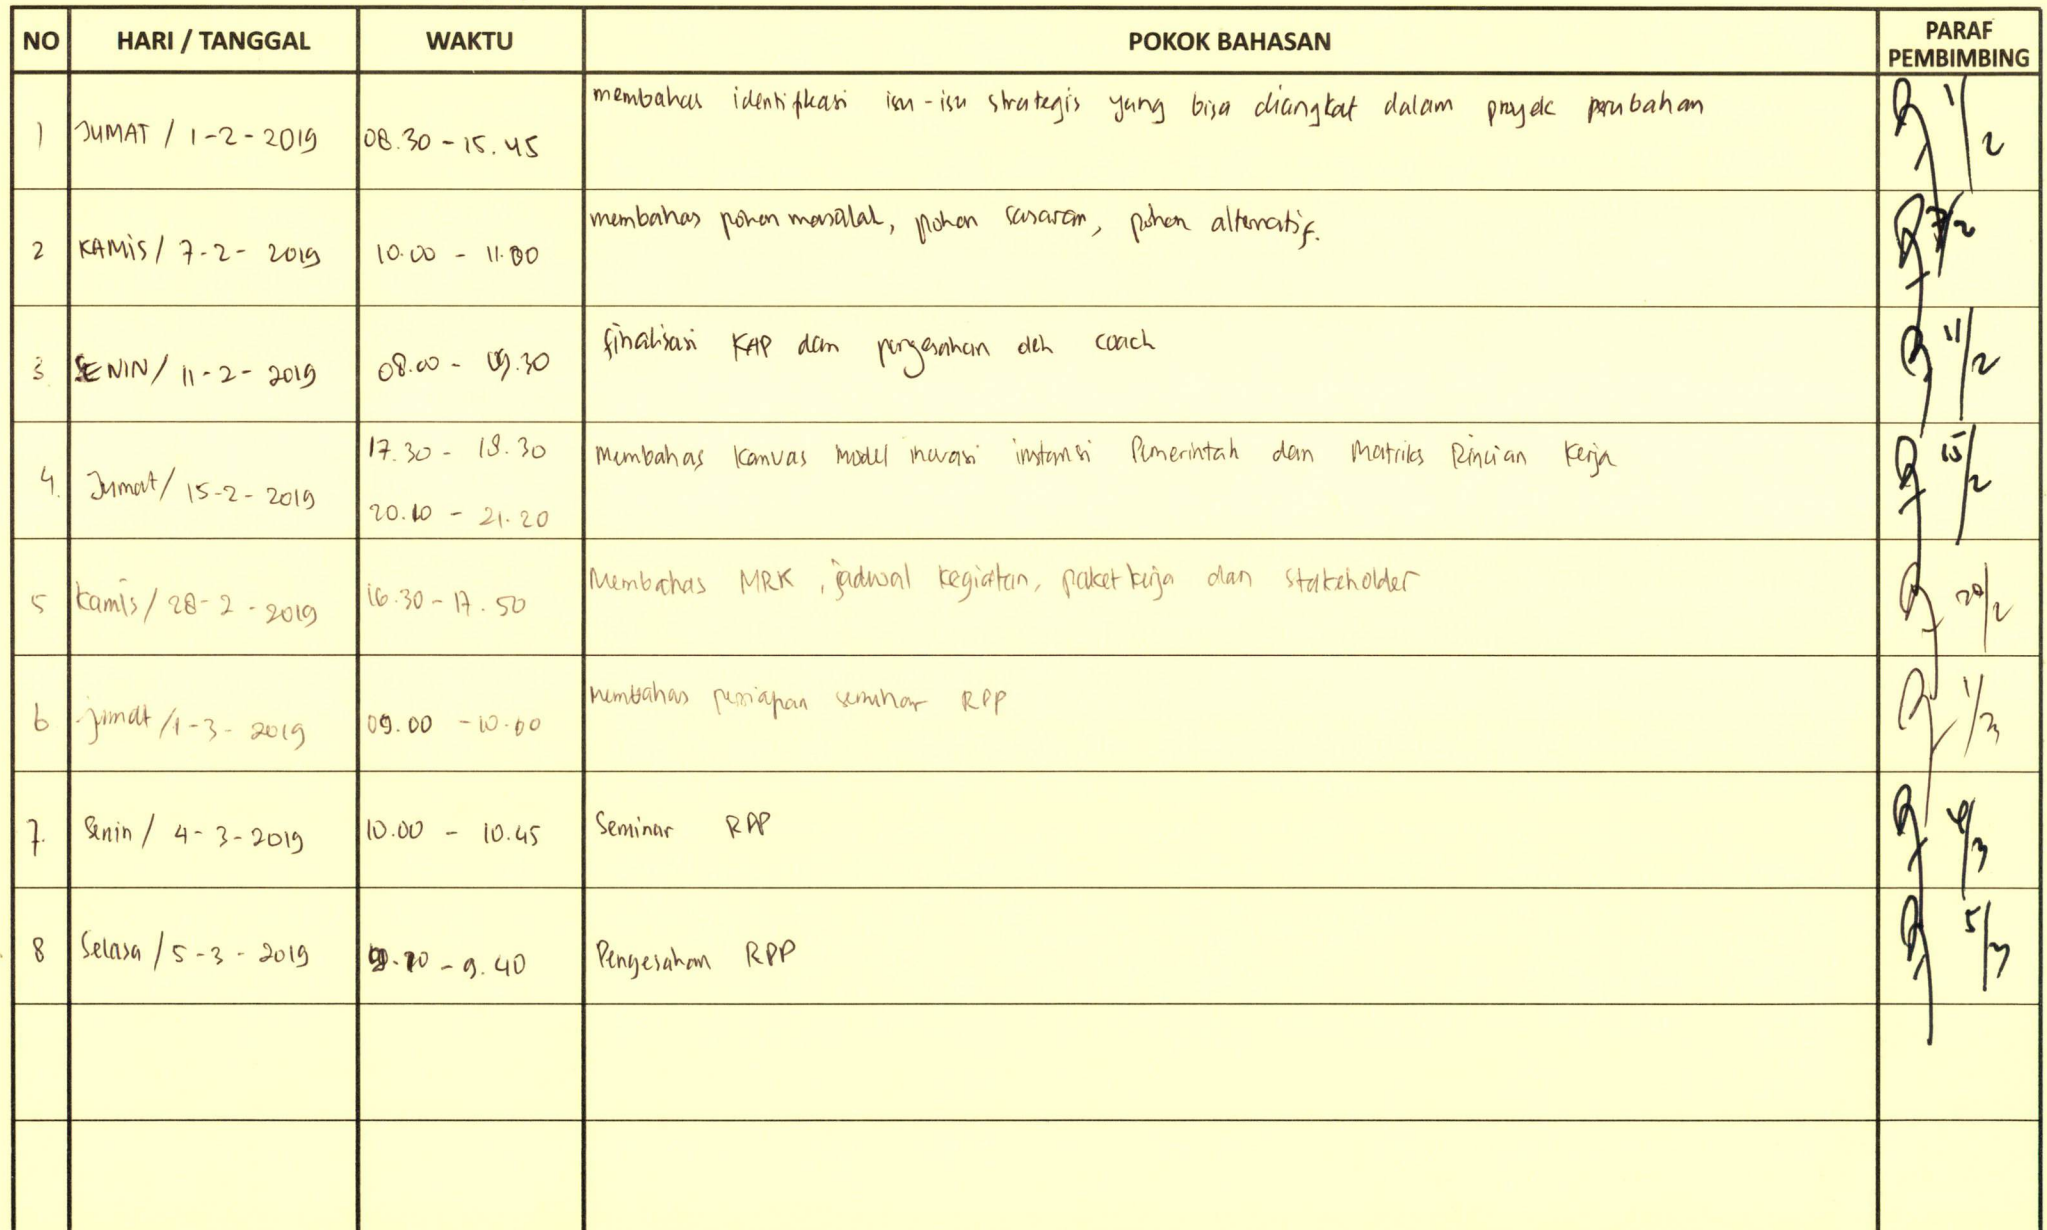 NO HARI / TANGGAL WAKTU POKOK BAHASAN PARAF PEMBIMBING
1 JUMAT / 1-2-2019 08.30 - 15.45 membahas identifikasi isu-isu strategis yang bisa diangkat dalam proyek perubahan 1/2
2 KAMIS / 7-2-2019 10.00 - 11.00 membahas pohon masalah, pohon sasaran, pohon alternatif. 7/2
3 SENIN / 11-2-2019 08.00 - 09.30 finalisasi KAP dan pengesahan oleh coach 11/2
4. Jumat / 15-2-2019 17.30 - 18.30 membahas Kanvas Model inovasi instansi Pemerintah dan Matriks Rincian Kerja 15/2
20.10 - 21.20
5 Kamis / 28-2-2019 16.30 - 17.50 Membahas MRK, jadwal kegiatan, paket kerja dan stakeholder 28/2
6 jumat / 1-3-2019 09.00 - 10.00 membahas persiapan seminar RPP 1/3
7. Senin / 4-3-2019 10.00 - 10.45 Seminar RPP 4/3
8 Selasa / 5-3-2019 - 9.40 Pengesahan RPP 5/3